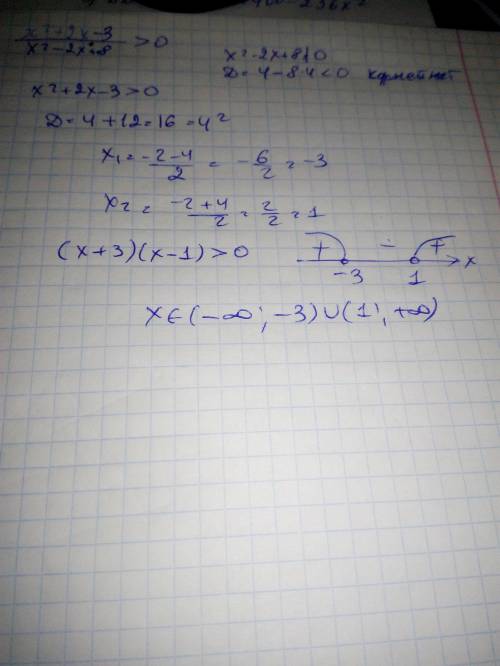 x²+2x-3 / x²-2x+8 > 0
x²-2x+8≠0
D=4-8·4<0 корней нет
x²+2x-3>0
D=4+12=16=4²
x₁=(-2-4)/2 = -6/2 = -3
x₂=(-2+4)/2 = 2/2 = 1
(x+3)(x-1)>0
+ - +
-3 1 x
x∈(-∞; -3)∪(1; +∞)